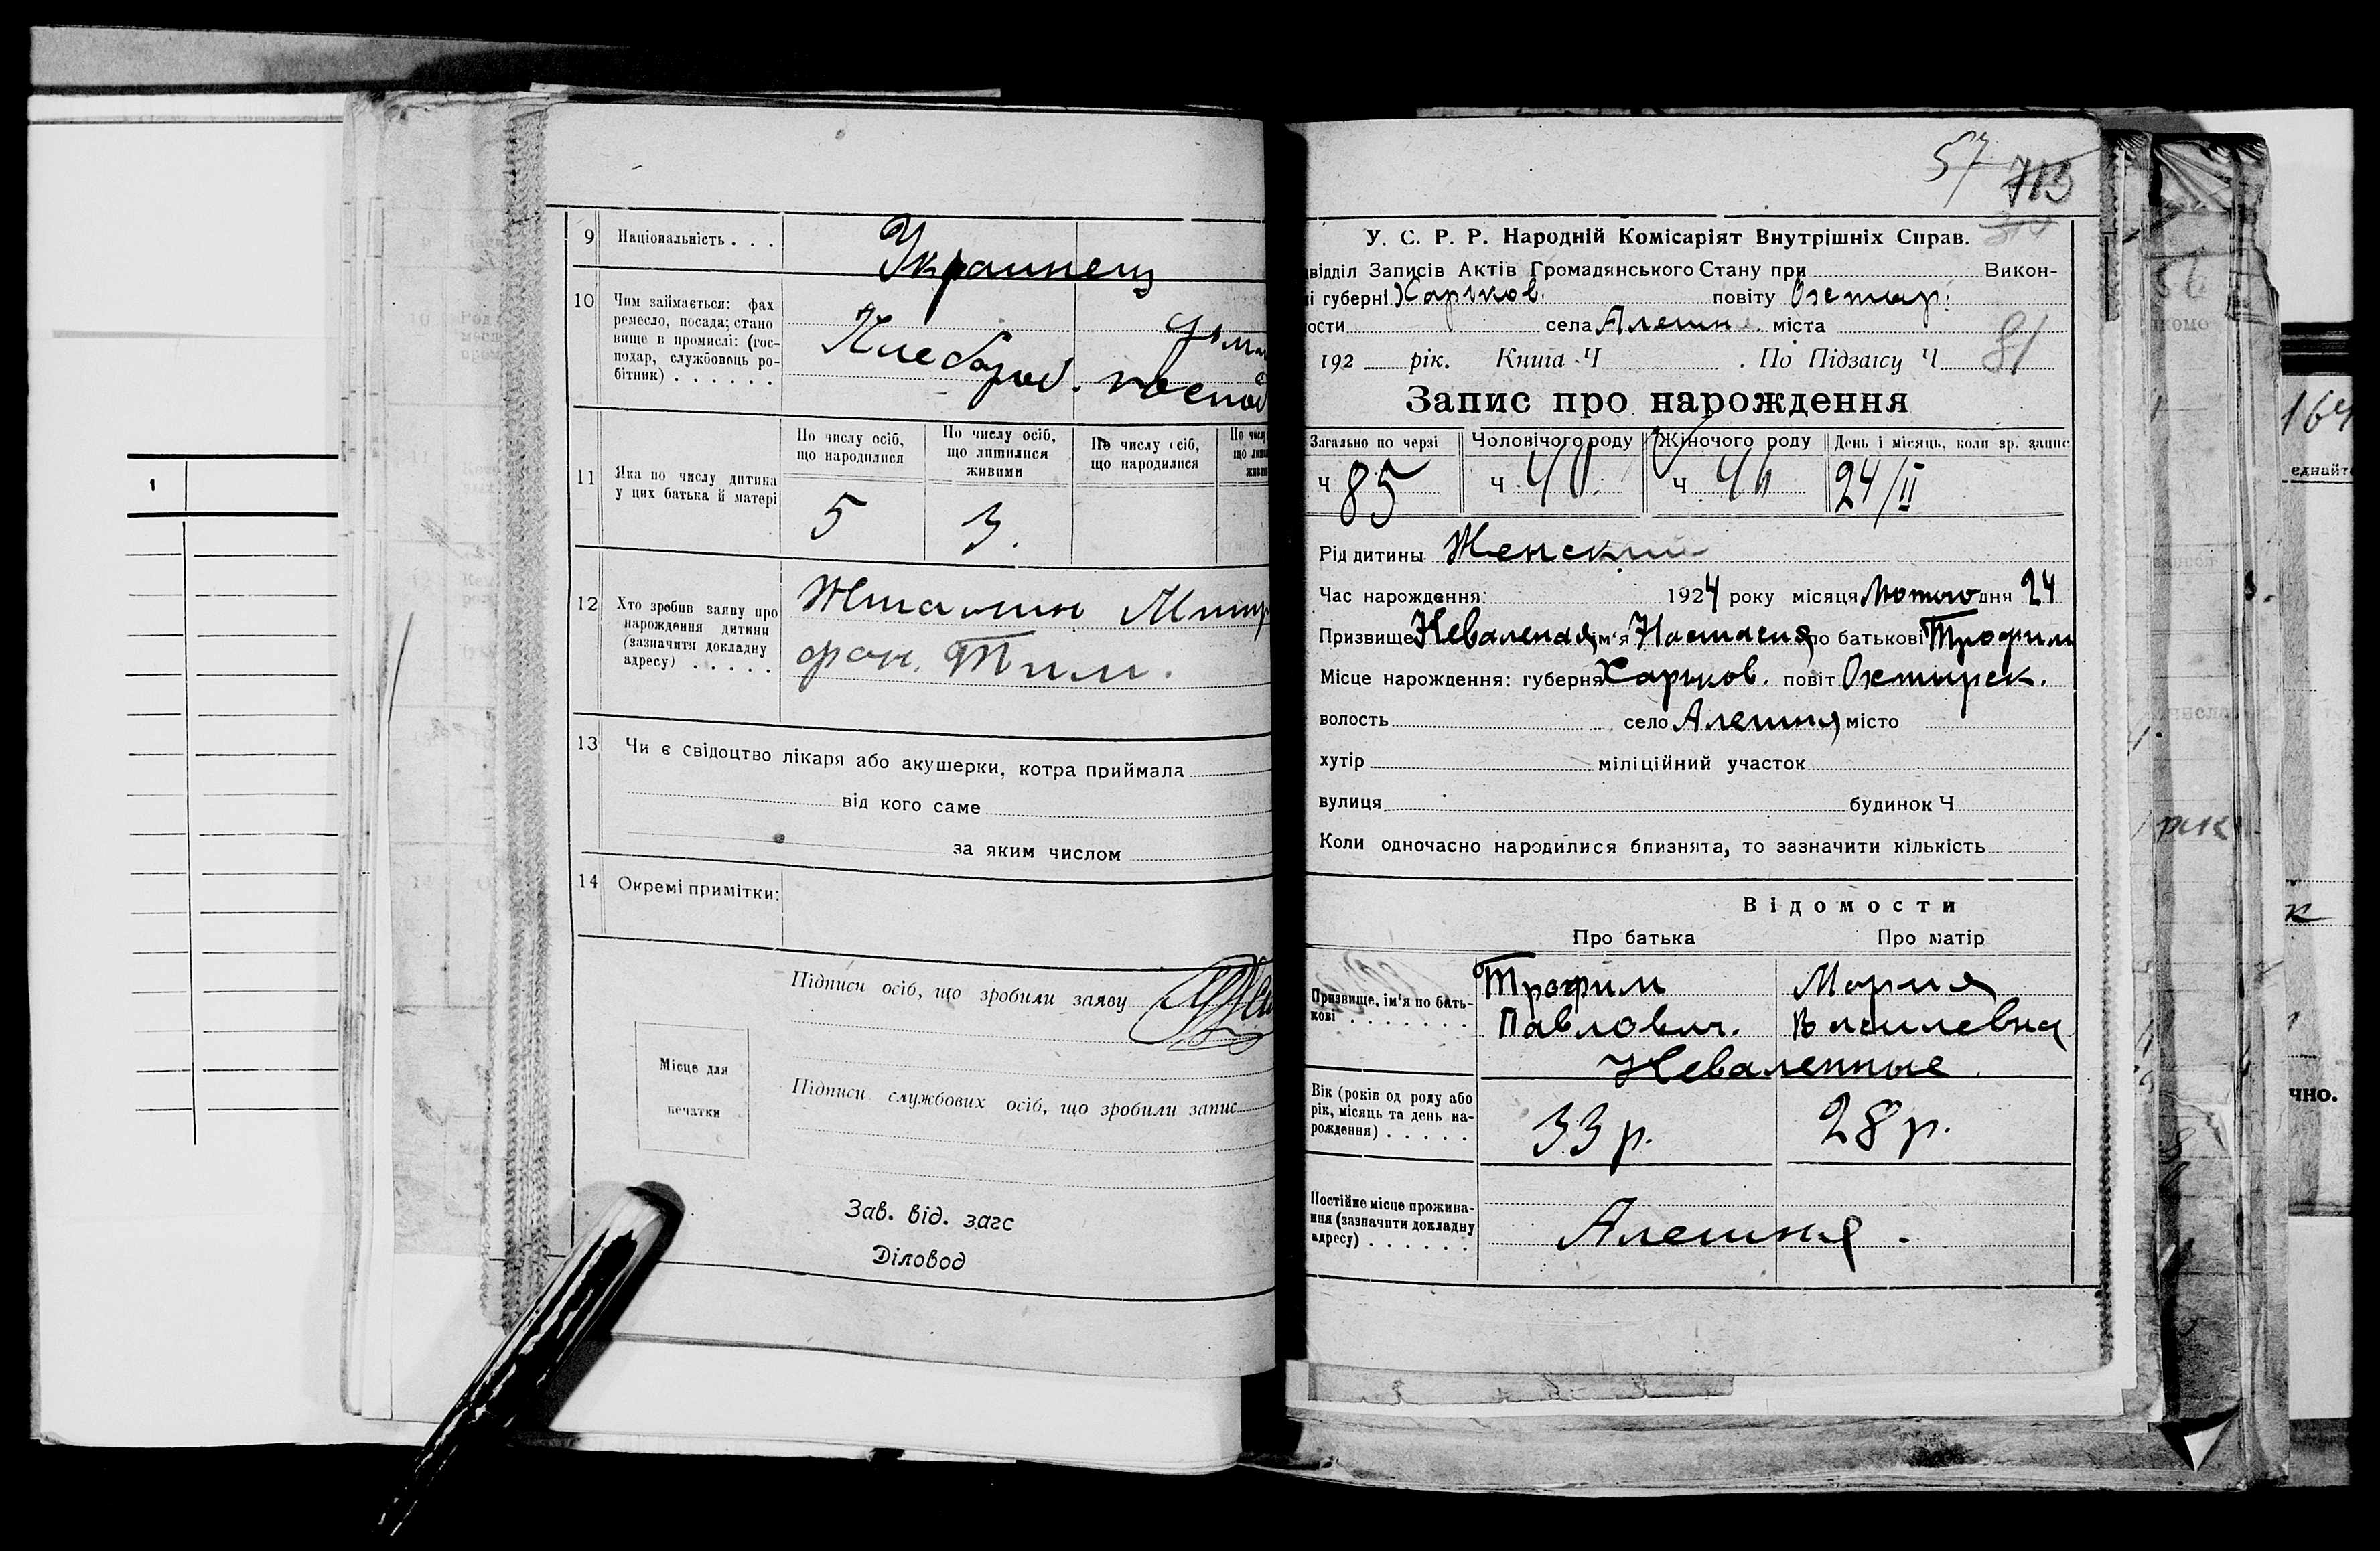 9 Національність . . .
Украинец
10 Чим займається: фах
ремесло, посада; стано
вище в промислі: (гос-
подар, службовець ро-
бітник) . . . . . .
Хлебороб.
11 Яка по числу дитина
у цих батька й матері
По числу осіб,
що народилися
По числу осіб,
що лишилися
живими
По числу осіб,
що народилися
5 3.
12 Хто зробив заяву про
нарождення дитини
(зазначити докладну
адресу) . . . . .
13 Чи є свідоцтво лікаря або акушерки, котра приймала
від кого саме
за яким числом
14 Окремі примітки:
Підписи осіб, що зробили заяву
Місце для
печатки
Підписи службових осіб, що зробили запис
Зав. від. загс
Діловод
57 713
У. С. Р. Р. Народній Комісаріят Внутрішніх Справ.
відділ Записів Актів Громадянського Стану при Викон-
і губерні Харьков. повіту Охтыр.
ости села Алешня. міста
192 рік. Книга Ч . По Підзагсу Ч 81
Запис про нарождення
Загально по черзі Чоловічого роду Жіночого роду День і місяць, коли зр. запис
Ч 85 Ч Ч 24/II
Рід дитины Женский
Час нарождення: 1924 року місяця Лютого дня 24
Призвище Неваленая ім'я Настасия по батькові Трофим
Місце нарождення: губерня Харьков. повіт Охтирск.
волость село Алешня місто
хутір міліційний участок
вулиця будинок Ч
Коли одночасно народилися близнята, то зазначити кількість
Відомости
Про батька Про матір
Призвище, ім'я по бать-
кові . . . . . . .
Трофим Мария
Павлович. Василевна
Неваленные
Вік (років од роду або
рік, місяць та день на-
рождення) . . . . .
33 р. 28 р.
Постійне місце прожива-
ння (зазначити докладну
адресу) . . . . . .
Алешня.